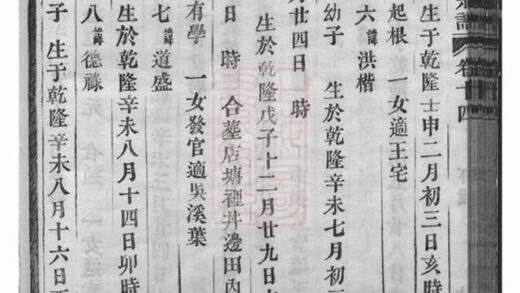 宗譜 卷十四
生于乾隆壬申二月初三日亥時
起根 一女適王宅
六 諱 洪楷
幼子 生於乾隆辛未七月初
廿四日 時
生於乾隆戊子十二月廿九日
日 時 合墓店塘裡井邊田內
有學 一女發官適吳溪葉
七 諱 道盛
生於乾隆辛未八月十四日卯時
八 諱 德祿
子 生于乾隆辛未八月十六日